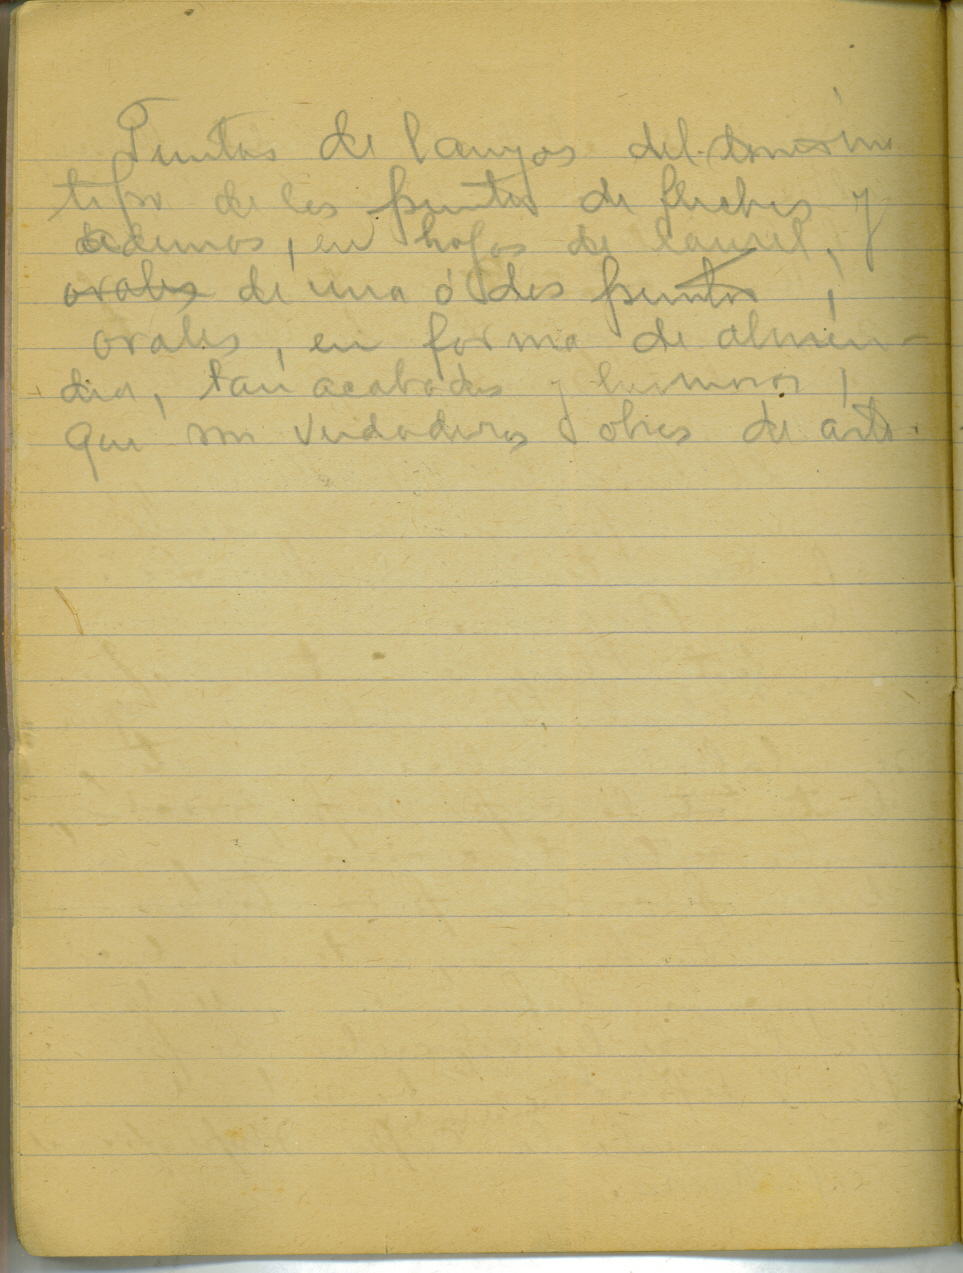 Puntas de lanzas del mismo
tipo de las puntas de flechas y
además, en hojas de laurel,
ovales de una ó dos puntas,
ovales, en forma de almen-
dra, tan acabadas y hermosas,
que son verdaderas obras de arte.